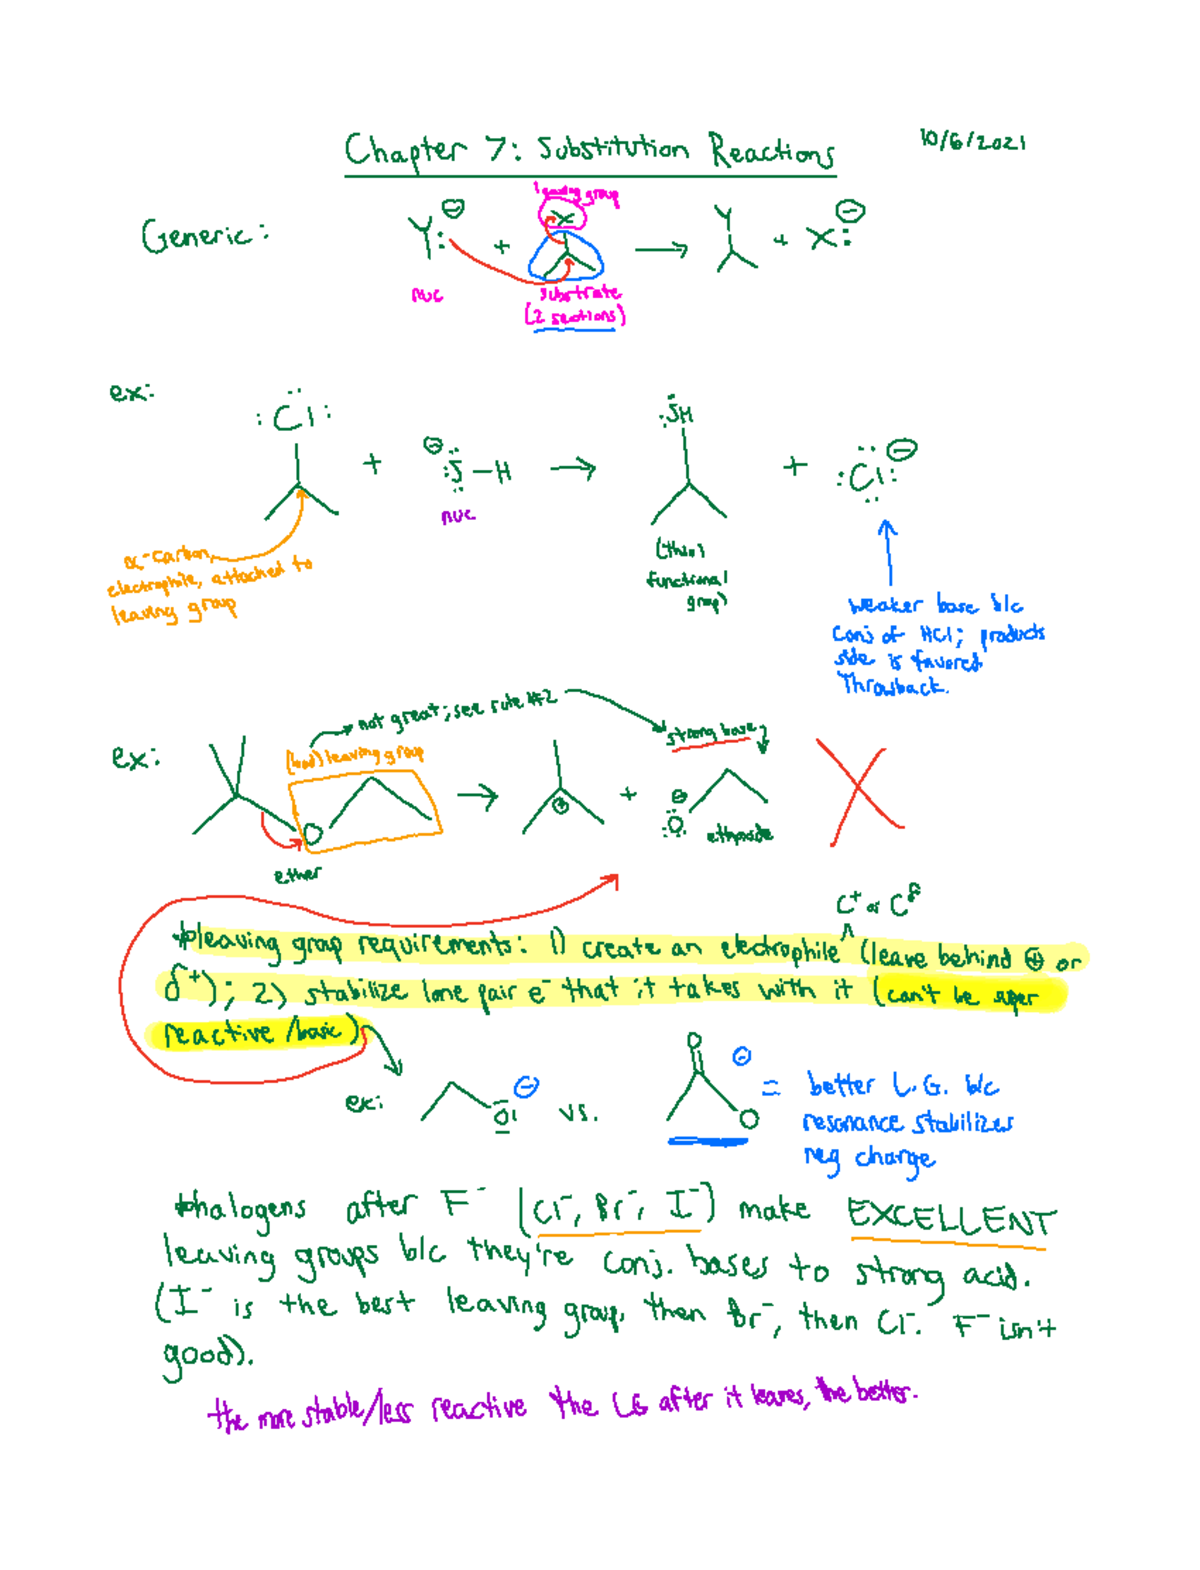 Chapter 7: Substitution Reactions
10/6/2021
Generic:
Y:⊖
nuc
+
leaving group
X
substrate
(2 sections)
→
Y
+ X:⊖
ex:
:Cl:
+
⊖ :S-H
nuc
→
:SH
(thiol
functional
group)
+
:Cl:⊖
α-carbon,
electrophile, attached to
leaving group
weaker base b/c
conj of HCl; products
side is favored
Throwback.
not great; see rule #2
strong base
ex:
(bad) leaving group
O
ether
→
⊕
+
⊖
:O:
X
C+ or Cδ
*leaving group requirements: 1) create an electrophile ^ (leave behind ⊕ or
δ+); 2) stabilize lone pair e- that it takes with it (can't be super
reactive/basic)
ex:
O ⊖
vs.
O
⊖
O
= better L.G. b/c
resonance stabilizes
neg charge
*halogens after F- (Cl-, Br-, I-) make EXCELLENT
leaving groups b/c they're conj. bases to strong acid.
(I- is the best leaving group, then Br-, then Cl-. F- isn't
good).
the more stable/less reactive the LG after it leaves, the better.